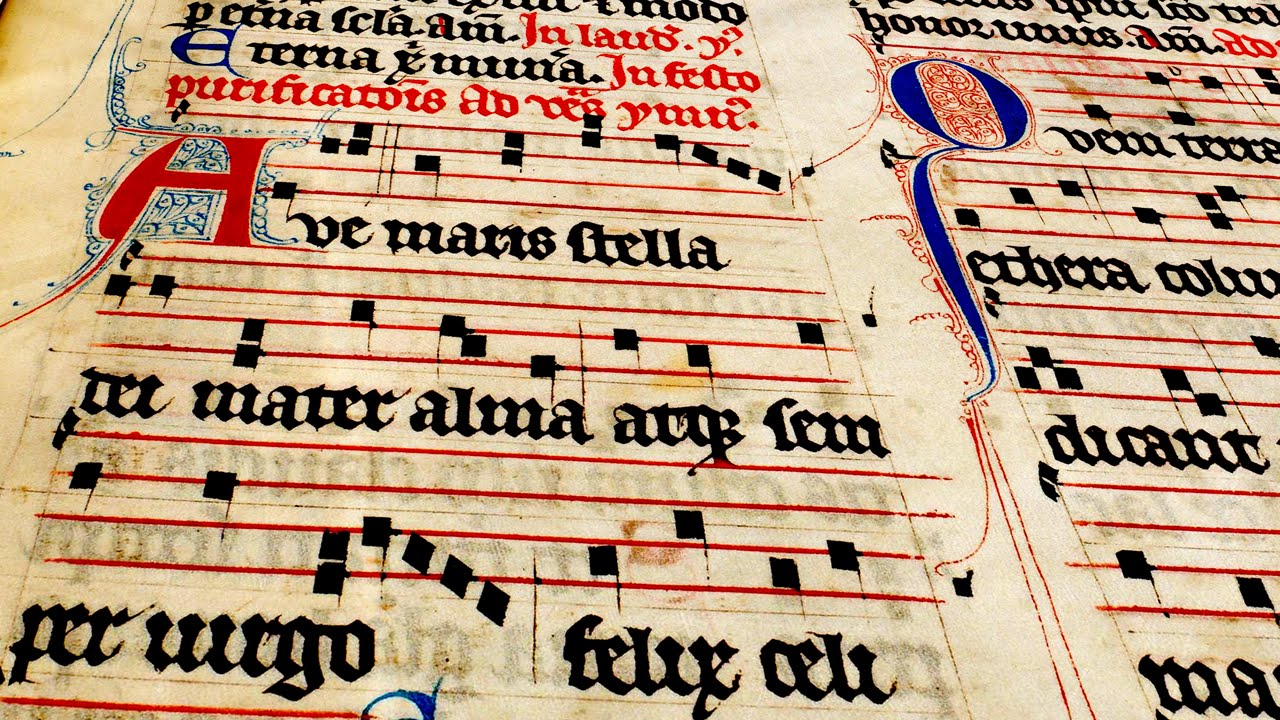 p etna scla. am̄. In laud. ỹ.
Eterna x̄ munā. In festo
purificatōis ad vēs ymñ.
Ave maris stella
dei mater alma atqꝫ sem
per uirgo felix celi
honor unus. am̄. ad
Quem terra
ethera colu
dicant